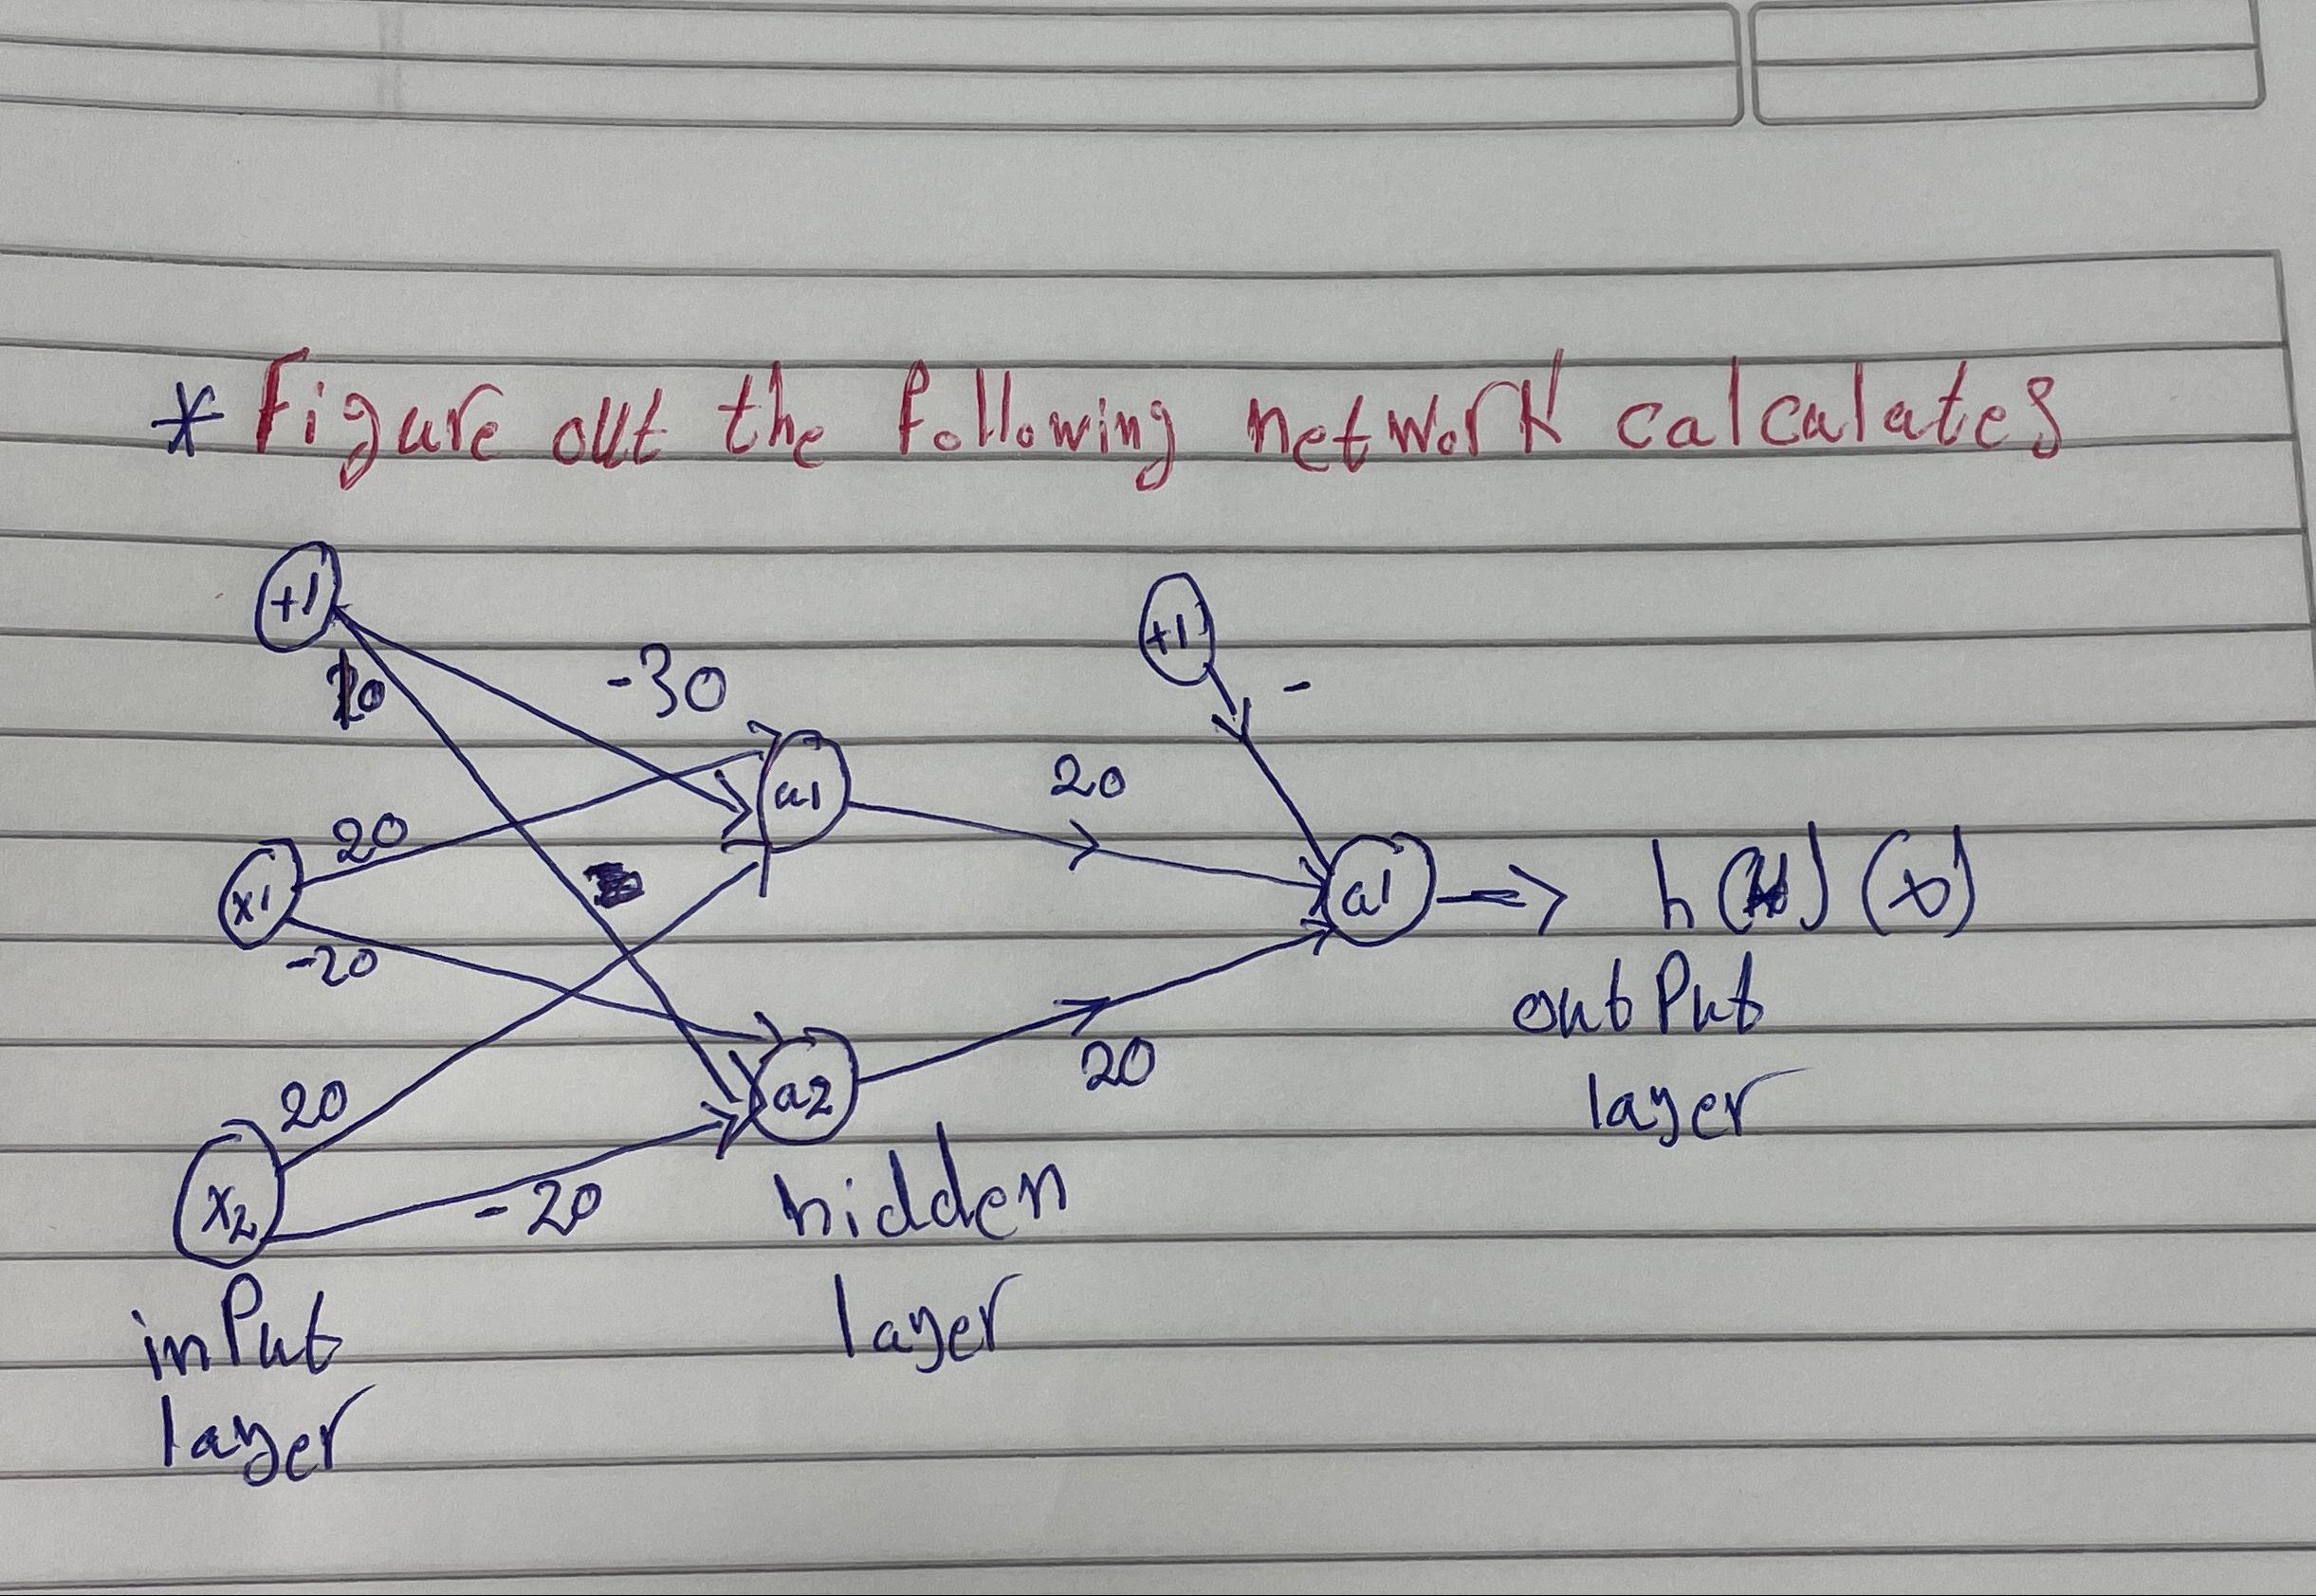 * Figure out the following network calculates
+1
+1
-30
10
-
a1
20
20
x1
a1
h( ) (x)
-20
output
20
a2
20
layer
x2
-20
hidden
input
layer
layer